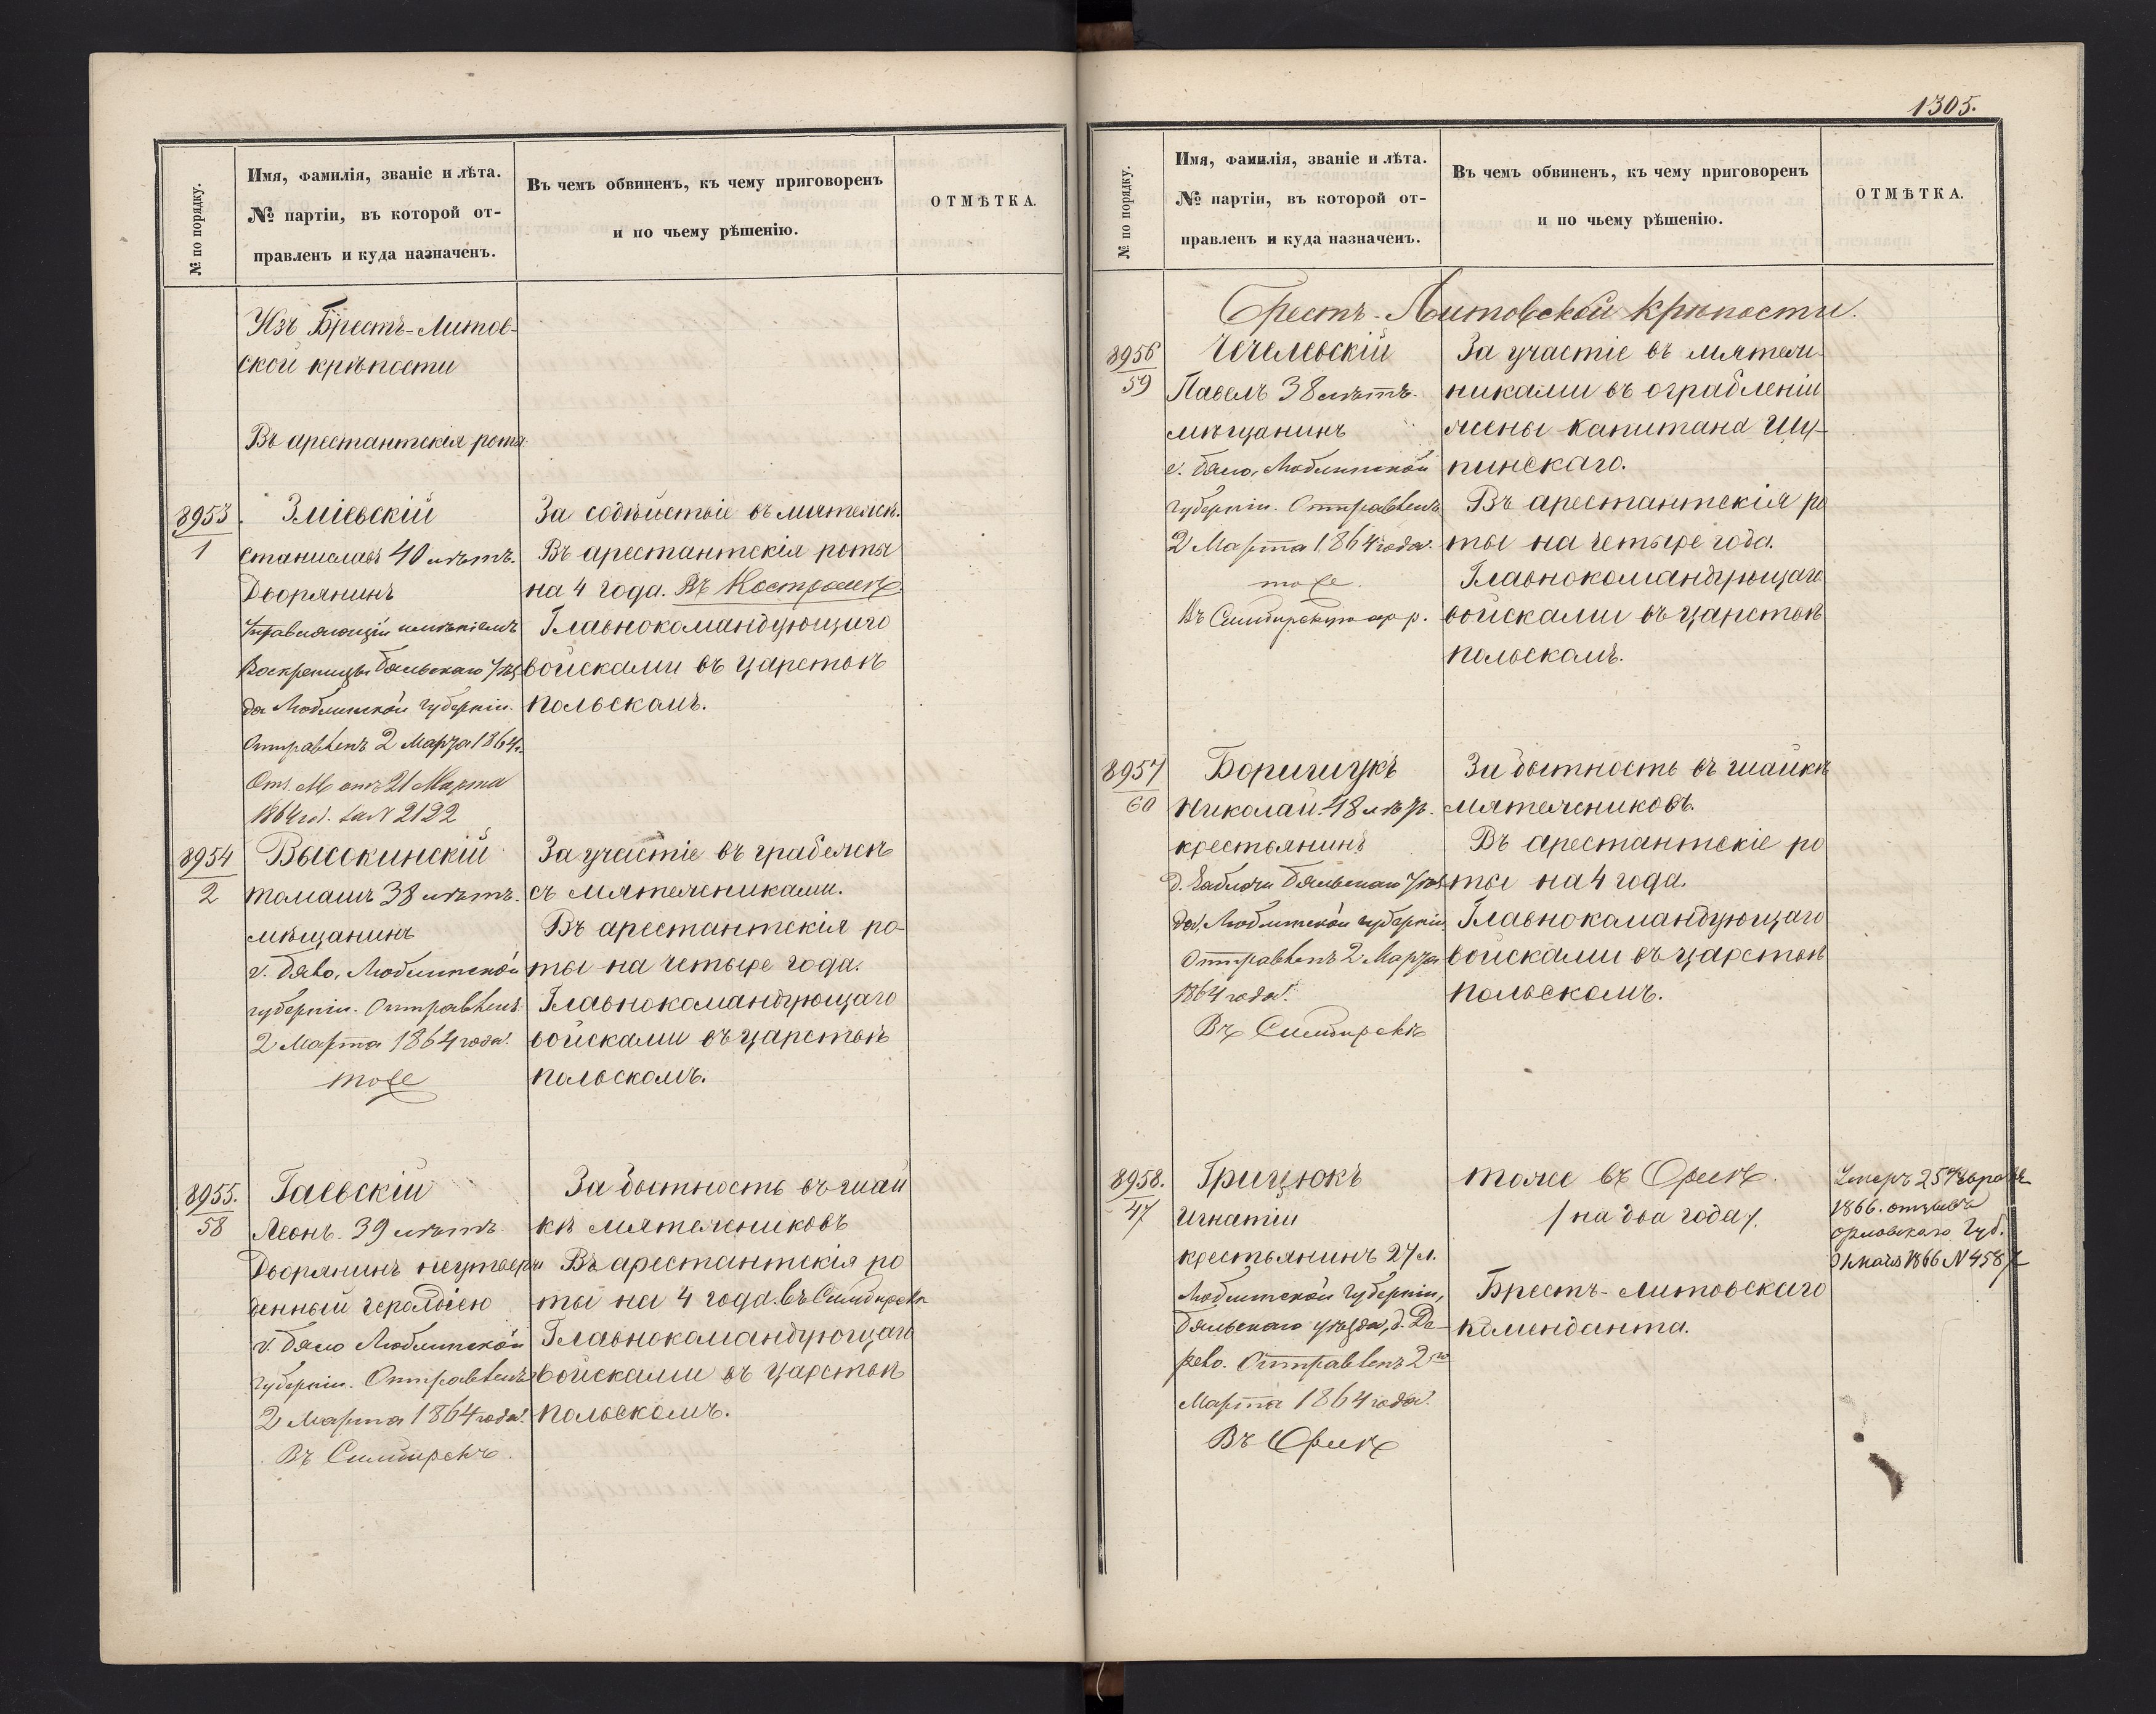 № по порядку.
Имя, фамилія, званіе и лѣта.
№ партіи, въ которой от-
правленъ и куда назначенъ.
Въ чемъ обвиненъ, къ чему приговоренъ
и по чьему рѣшенію.
ОТМѢТКА.
Изъ Брестъ-Литов-
ской крѣпости
Въ арестантскія роты
8953
1
Зміевскій
Станиславъ 40 лѣтъ.
Дворянинъ
Управляющій имѣніемъ
Воскреницы Бяльскаго уѣз-
да Люблинской губерніи.
Отправленъ 2 Марта 1864 г.
От. М. отъ 21 Марта
1864 год. за N 2122
За содѣйствіе въ мятежѣ.
Въ арестантскія роты
на 4 года. Въ Костромѣ
Главнокомандующаго
войсками въ царствѣ
польскомъ.
8954
2
Высокинскій
Томашъ 38 лѣтъ.
мѣщанинъ
г. Бяло, Люблинской
губерніи. Отправленъ
2 Марта 1864 года.
тоже
За участіе въ грабежѣ
съ мятежниками.
Въ арестантскія ро-
ты на четыре года.
Главнокомандующаго
войсками въ царствѣ
польскомъ.
8955.
58
Гаевскій
Леонъ. 39 лѣтъ.
Дворянинъ неутверж
денный герольдіею
г. Бяло Люблинской
губерніи. Отправленъ
2 Марта 1864 года.
Въ Симбирскъ
За бытность въ шай
кѣ мятежниковъ
Въ арестантскія ро
ты на 4 года. въ Симбирскѣ
Главнокомандующаго
войсками въ царствѣ
польскомъ.
1305.
№ по порядку.
Имя, фамилія, званіе и лѣта.
№ партіи, въ которой от-
правленъ и куда назначенъ.
Въ чемъ обвиненъ, къ чему приговоренъ
и по чьему рѣшенію.
ОТМѢТКА.
Брестъ-Литовской крѣпости.
8956
59
Чечелевскій
Павелъ 38 лѣтъ.
мѣщанинъ
г. Бяло, Люблинской
губерніи. Отправленъ
2 Марта 1864 года.
тоже.
Въ Симбирскую ар р.
За участіе въ мятеж
никами въ ограбленіи
жены капитана Шу-
пинскаго.
Въ арестантскія ро
ты на четыре года.
Главнокомандующаго
войсками въ царствѣ
польскомъ.
8957
60
Боричукъ
Николай. 48 лѣтъ.
крестьянинъ
Бяльскаго уѣз-
да, Люблинской губерніи.
Отправленъ 2 Марта
1864 года.
Въ Симбирскѣ
За бытность въ шайкѣ
мятежниковъ.
Въ арестантскіе ро
ты на 4 года.
Главнокомандующаго
войсками въ царствѣ
польскомъ.
8958.
47
Грицюкъ
Игнатіи
крестьянинъ 27 л.
Люблинской губерніи,
Бяльскаго уѣзда, д. Де-
рево. Отправленъ 2го
Марта 1864 года.
Въ Орелъ
тоже въ Орелъ.
/на два года/.
Брестъ-Литовскаго
коменданта.
Умеръ 25 Февраля
1866. отзывъ
Орловскаго Губ.
мая 1866 N 458